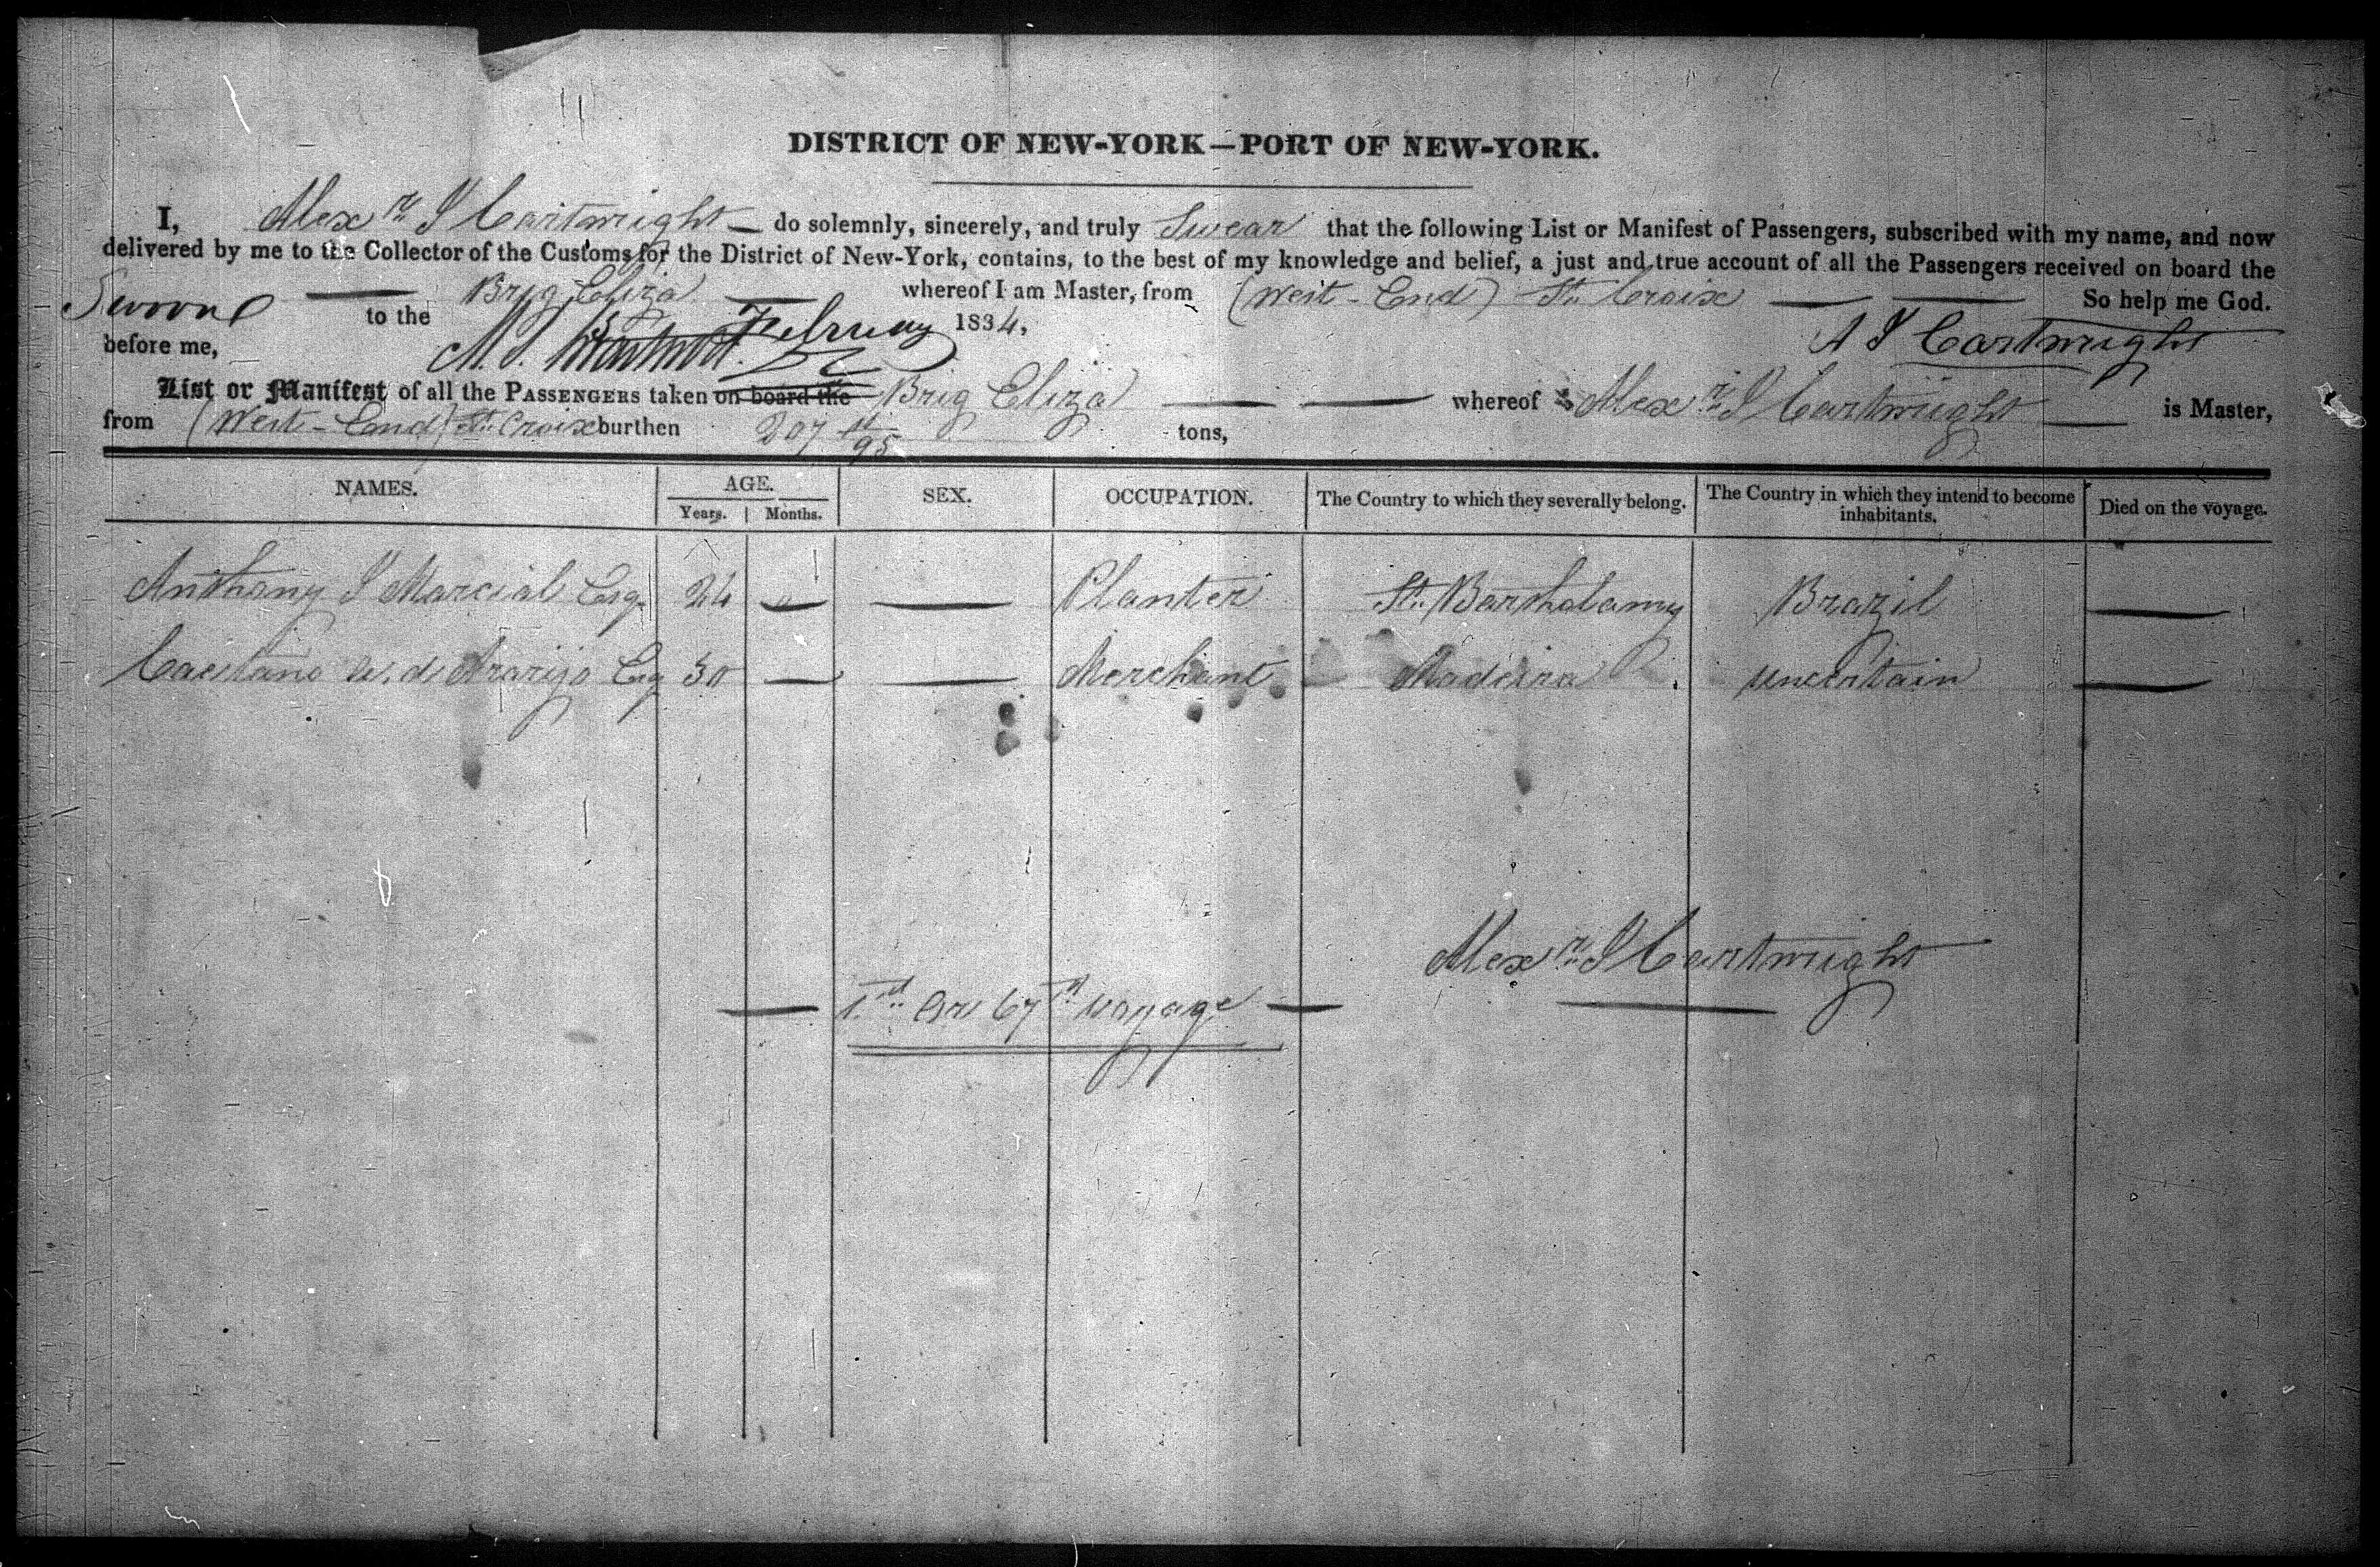 DISTRICT OF NEW-YORK—PORT OF NEW-YORK.
I, Alexr J Cartwright — do solemnly, sincerely, and truly Swear that the following List or Manifest of Passengers, subscribed with my name, and now
delivered by me to the Collector of the Customs for the District of New-York, contains, to the best of my knowledge and belief, a just and true account of all the Passengers received on board the
— Brig Eliza — whereof I am Master, from (West-End) St. Croix — — So help me God.
Sworn to the February 1834,
A J Cartwright
before me,
List or Manifest of all the PASSENGERS taken on board the Brig Eliza — — whereof Alexr J Cartwright — is Master,
from (West-End) St. Croix burthen 207 11/95 tons,
NAMES. AGE. SEX. OCCUPATION. The Country to which they severally belong. The Country in which they intend to become inhabitants. Died on the voyage.
Years. Months.
Anthony J Marcial Esq. 24 — — Planter St. Bartholamy Brazil —
Caetano de Ararijo Esq 30 — — Merchant Madeira uncertain —
Alexr J Cartwright
— 1st Or 67th voyage —